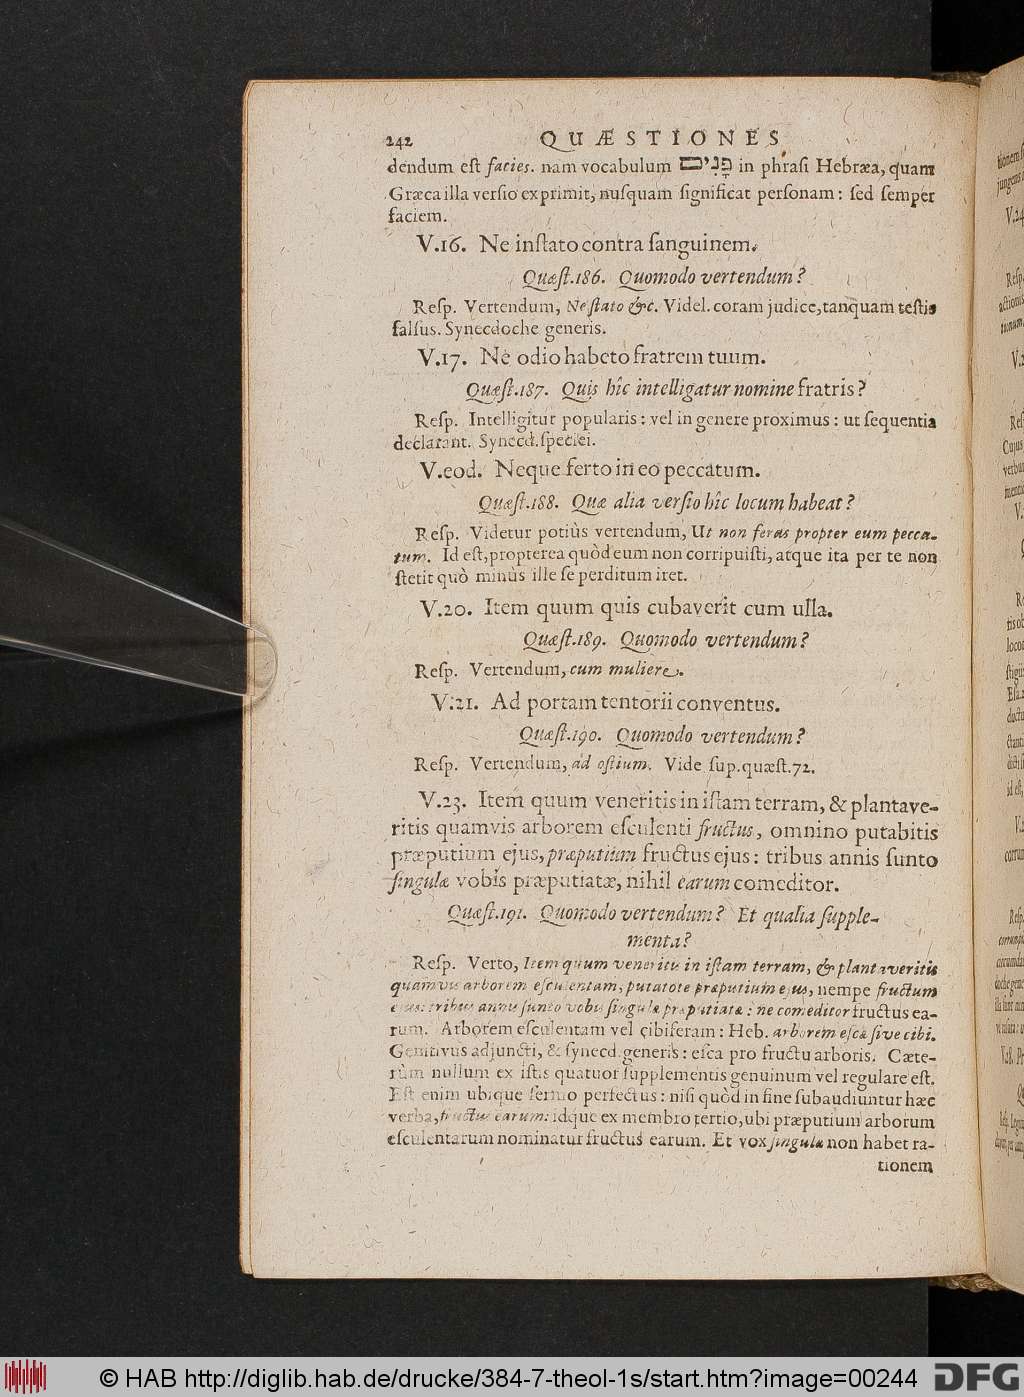 242 QUÆSTIONES
dendum est facies. nam vocabulum פָּנִים in phrasi Hebræa, quam
Græca illa versio exprimit, nusquam significat personam: sed semper
faciem.
V.16. Ne instato contra sanguinem.
Quæst.186. Quomodo vertendum?
Resp. Vertendum, Ne stato &c. Videl. coram judice, tanquam testis
falsus. Synecdoche generis.
V.17. Ne odio habeto fratrem tuum.
Quæst.187. Quis hîc intelligatur nomine fratris?
Resp. Intelligitur popularis: vel in genere proximus: ut sequentia
declarant. Synecd. speciei.
V.eod. Neque ferto in eo peccatum.
Quæst.188. Quæ alia versio hîc locum habeat?
Resp. Videtur potiùs vertendum, Ut non feras propter eum pecca-
tum. Id est, propterea quòd eum non corripuisti, atque ita per te non
stetit quò minùs ille se perditum iret.
V.20. Item quum quis cubaverit cum ulla.
Quæst.189. Quomodo vertendum?
Resp. Vertendum, cum muliere.
V.21. Ad portam tentorii conventus.
Quæst.190. Quomodo vertendum?
Resp. Vertendum, ad ostium. Vide sup. quæst.72.
V.23. Item quum veneritis in istam terram, & plantave-
ritis quamvis arborem esculenti fructus, omnino putabitis
præputium ejus, præputium fructus ejus: tribus annis sunto
singulæ vobis præputiatæ, nihil earum comeditor.
Quæst.191. Quomodo vertendum? Et qualia supple-
menta?
Resp. Verto, Item quum veneritis in istam terram, & plantaveritis
quamvis arborem esculentam, putatote præputium ejus, nempe fructum
ejus: tribus annis sunto vobis singulæ præputiatæ: ne comeditor fructus ea-
rum. Arborem esculentam vel cibiferam: Heb. arborem escæ sive cibi.
Genitivus adjuncti, & synecd. generis: esca pro fructu arboris. Cæte-
rùm nullum ex istis quatuor supplementis genuinum vel regulare est.
Est enim ubique sermo perfectus: nisi quòd in fine subaudiuntur hæc
verba, fructus earum: idque ex membro tertio, ubi præputium arborum
esculentarum nominatur fructus earum. Et vox singulæ non habet ra-
tionem
© HAB http://diglib.hab.de/drucke/384-7-theol-1s/start.htm?image=00244
DFG